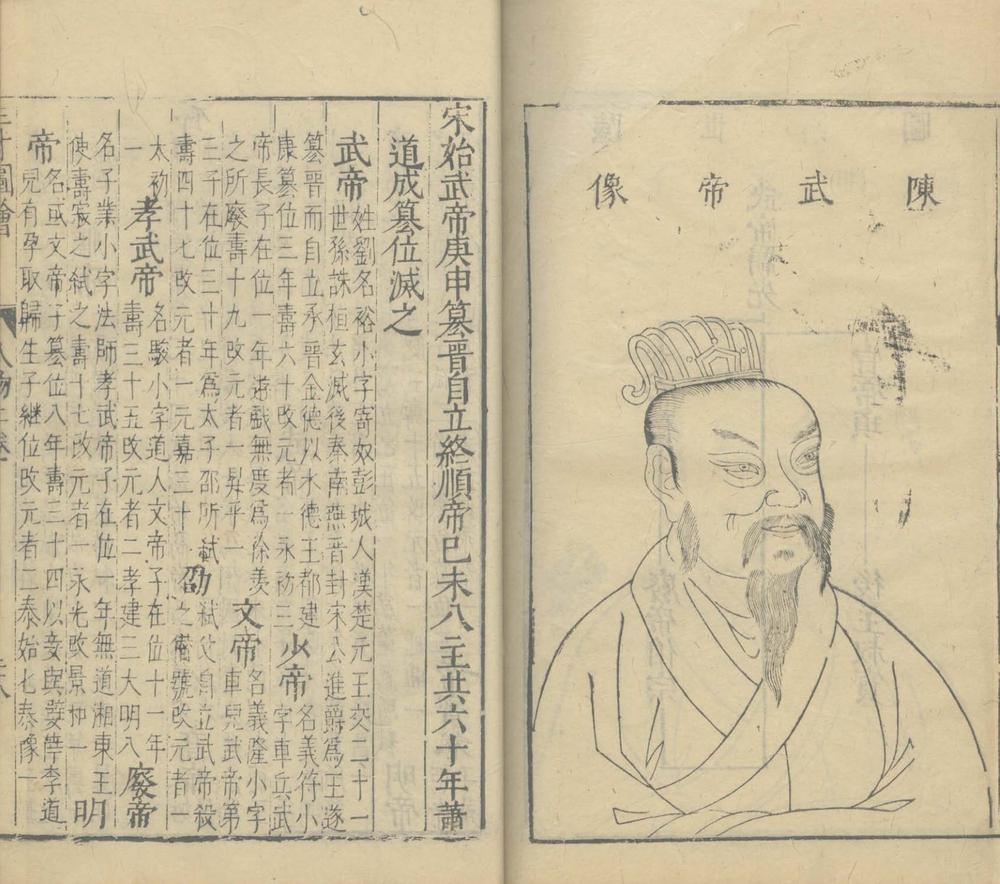 陳武帝像
宋始武帝庚申篡晉自立終順帝己未八主共六十年蕭
道成篡位滅之
武帝姓劉名裕小字寄奴彭城人漢楚元王交二十一
世孫誅桓玄滅後秦南燕晉封宋公進爵爲王遂
篡晉而自立承晉金德以水德王都建
康篡位三年壽六十改元者一永初三
少帝名義符小
字車兵武
帝長子在位一年遊戲無度爲徐羨
之所廢壽十九改元者一昇平一
文帝名義隆小字
車兒武帝第
三子在位三十年爲太子邵所弒
壽四十七改元者一元嘉三十
劭弒父自立武帝殺
之僭號改元者一
太初
一
孝武帝名駿小字道人文帝子在位十一年
壽三十五改元者二孝建三大明八
廢帝
名子業小字法師孝武帝子在位一年無道湘東王
使壽寂之弒之壽十七改元者一永光改景和一
明
帝名彧文帝子篡位八年壽三十四以妾與嬖倖李道
兒有孕取歸生子繼位改元者二泰始七泰豫一
三才圖會
人物二卷